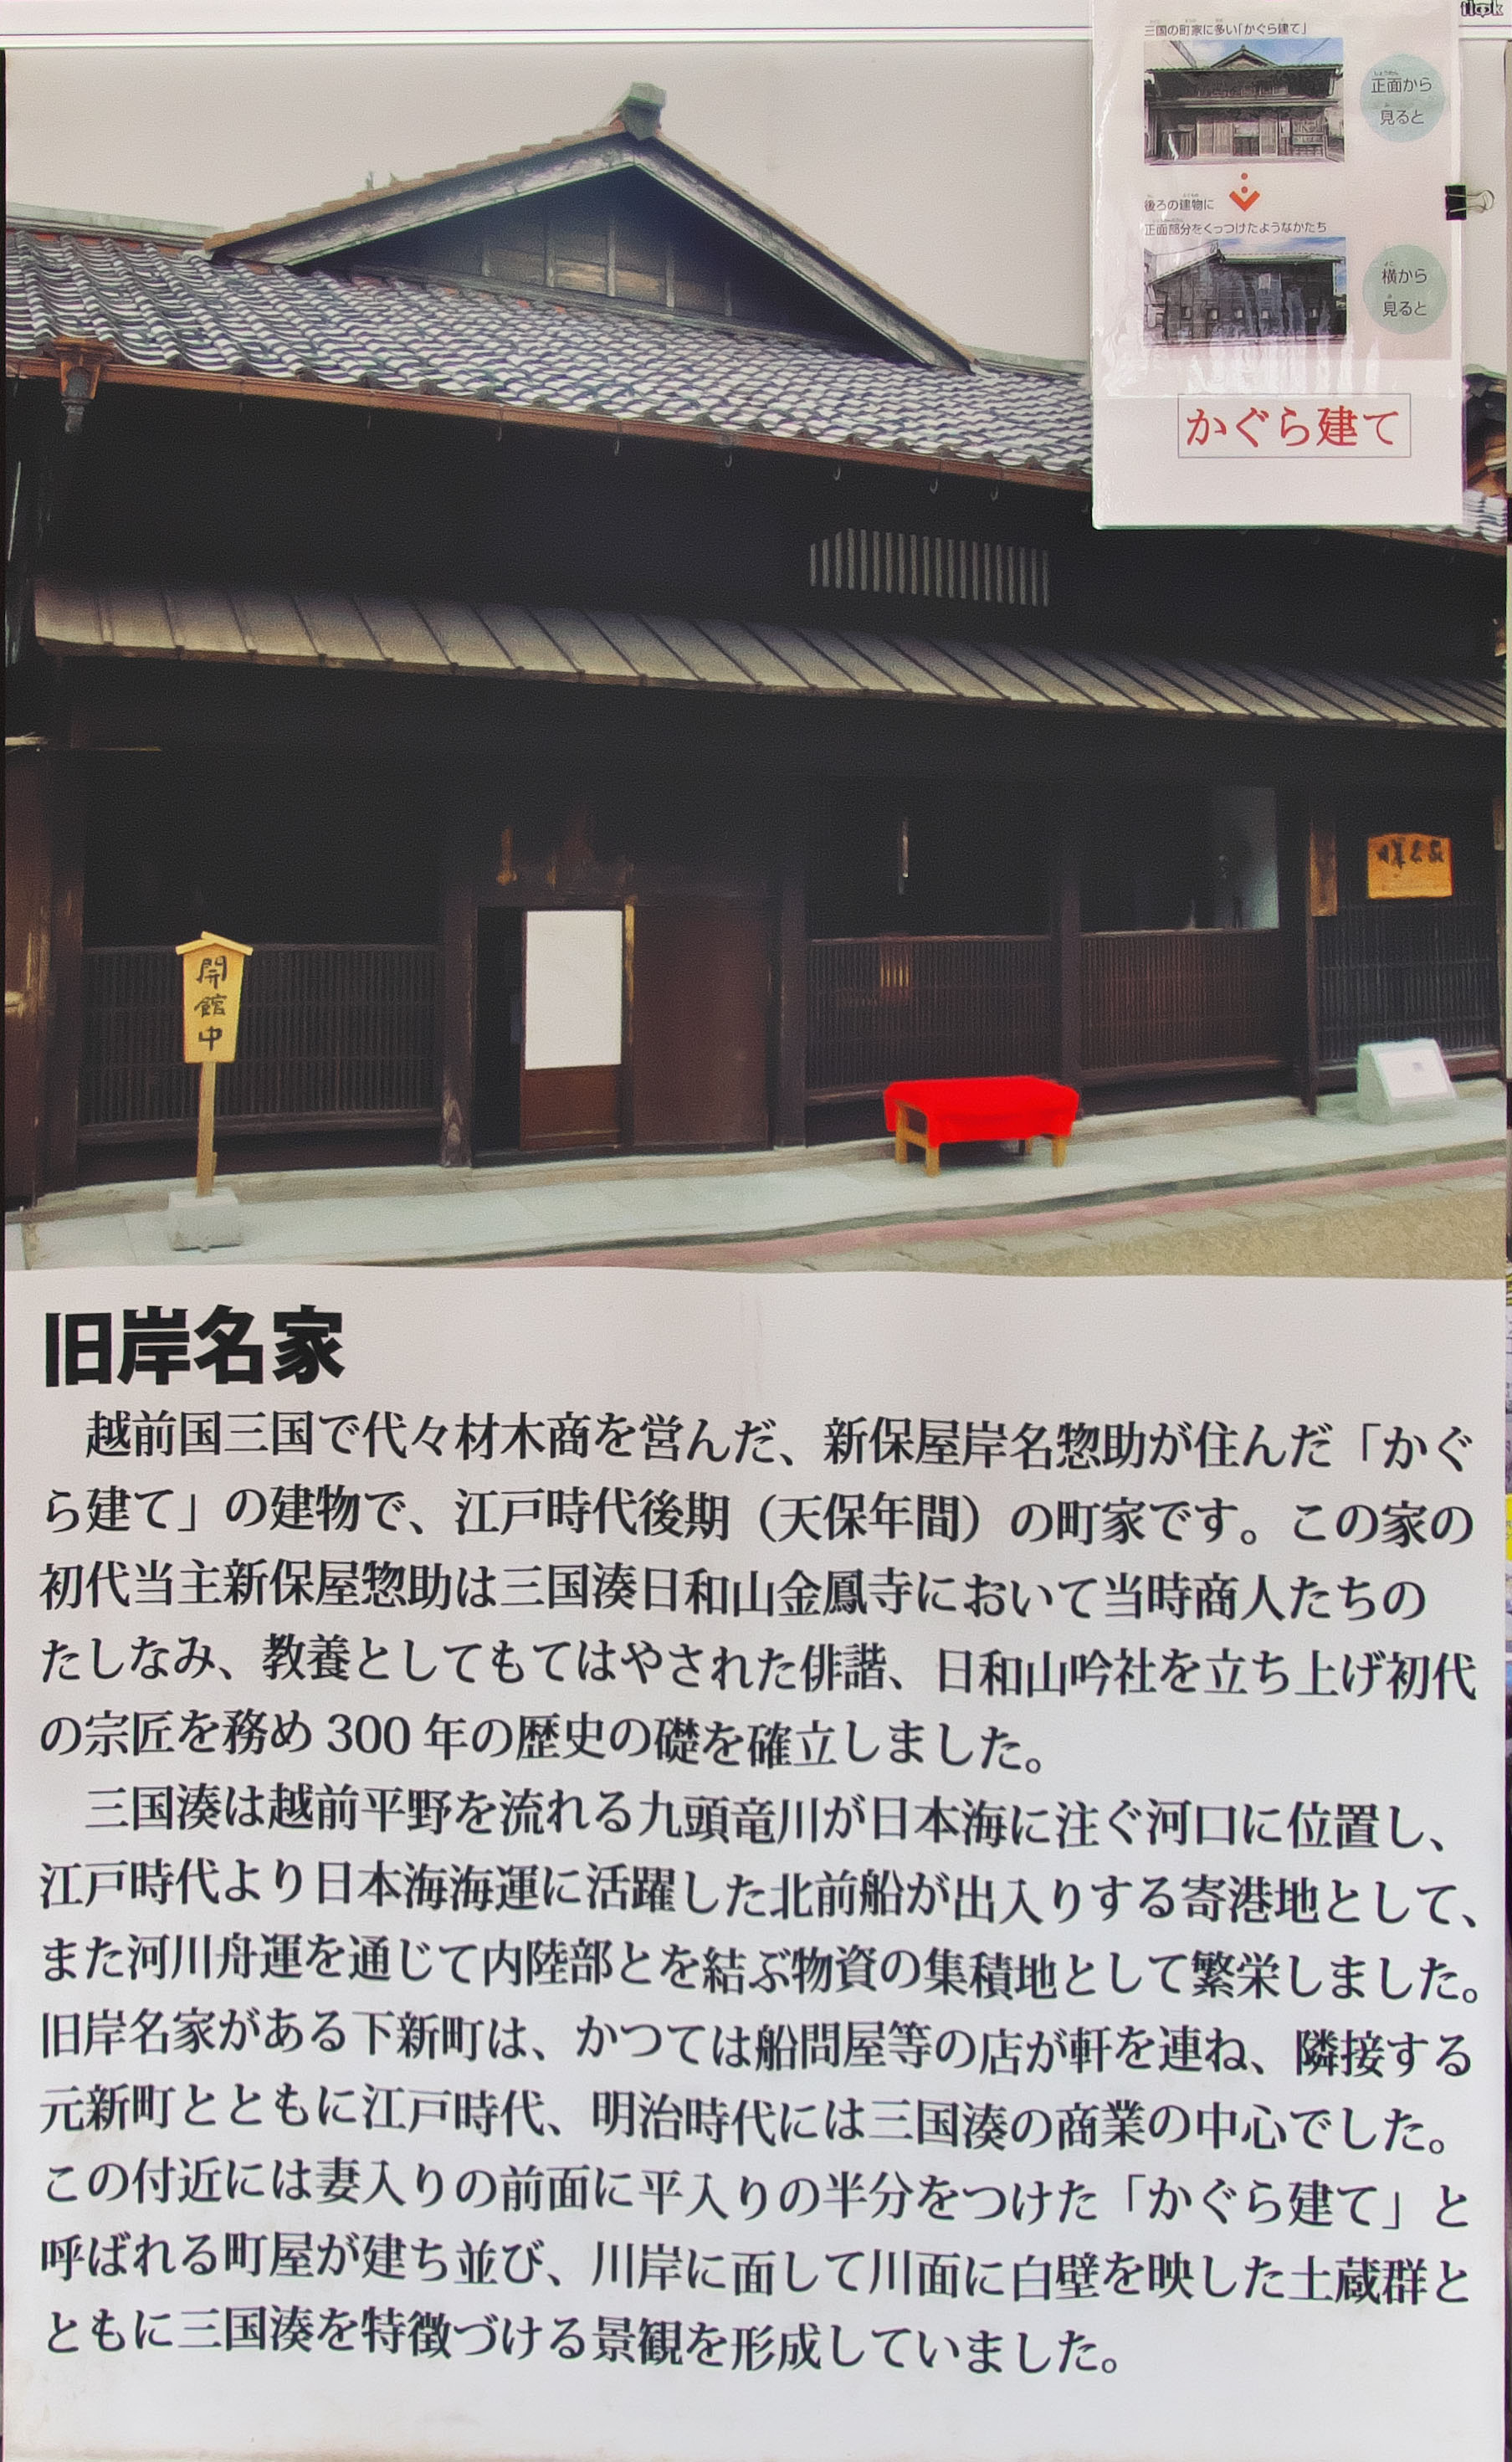 三国の町家に多い「かぐら建て」
正面から
見ると
後ろの建物に
正面部分をくっつけたようなかたち
横から
見ると
かぐら建て
開館中
旧岸名家
越前国三国で代々材木商を営んだ、新保屋岸名惣助が住んだ「かぐ
ら建て」の建物で、江戸時代後期（天保年間）の町家です。この家の
初代当主新保屋惣助は三国湊日和山金鳳寺において当時商人たちの
たしなみ、教養としてもてはやされた俳諧、日和山吟社を立ち上げ初代
の宗匠を務め 300 年の歴史の礎を確立しました。
三国湊は越前平野を流れる九頭竜川が日本海に注ぐ河口に位置し、
江戸時代より日本海海運に活躍した北前船が出入りする寄港地として、
また河川舟運を通じて内陸部とを結ぶ物資の集積地として繁栄しました。
旧岸名家がある下新町は、かつては船問屋等の店が軒を連ね、隣接する
元新町とともに江戸時代、明治時代には三国湊の商業の中心でした。
この付近には妻入りの前面に平入りの半分をつけた「かぐら建て」と
呼ばれる町屋が建ち並び、川岸に面して川面に白壁を映した土蔵群と
ともに三国湊を特徴づける景観を形成していました。